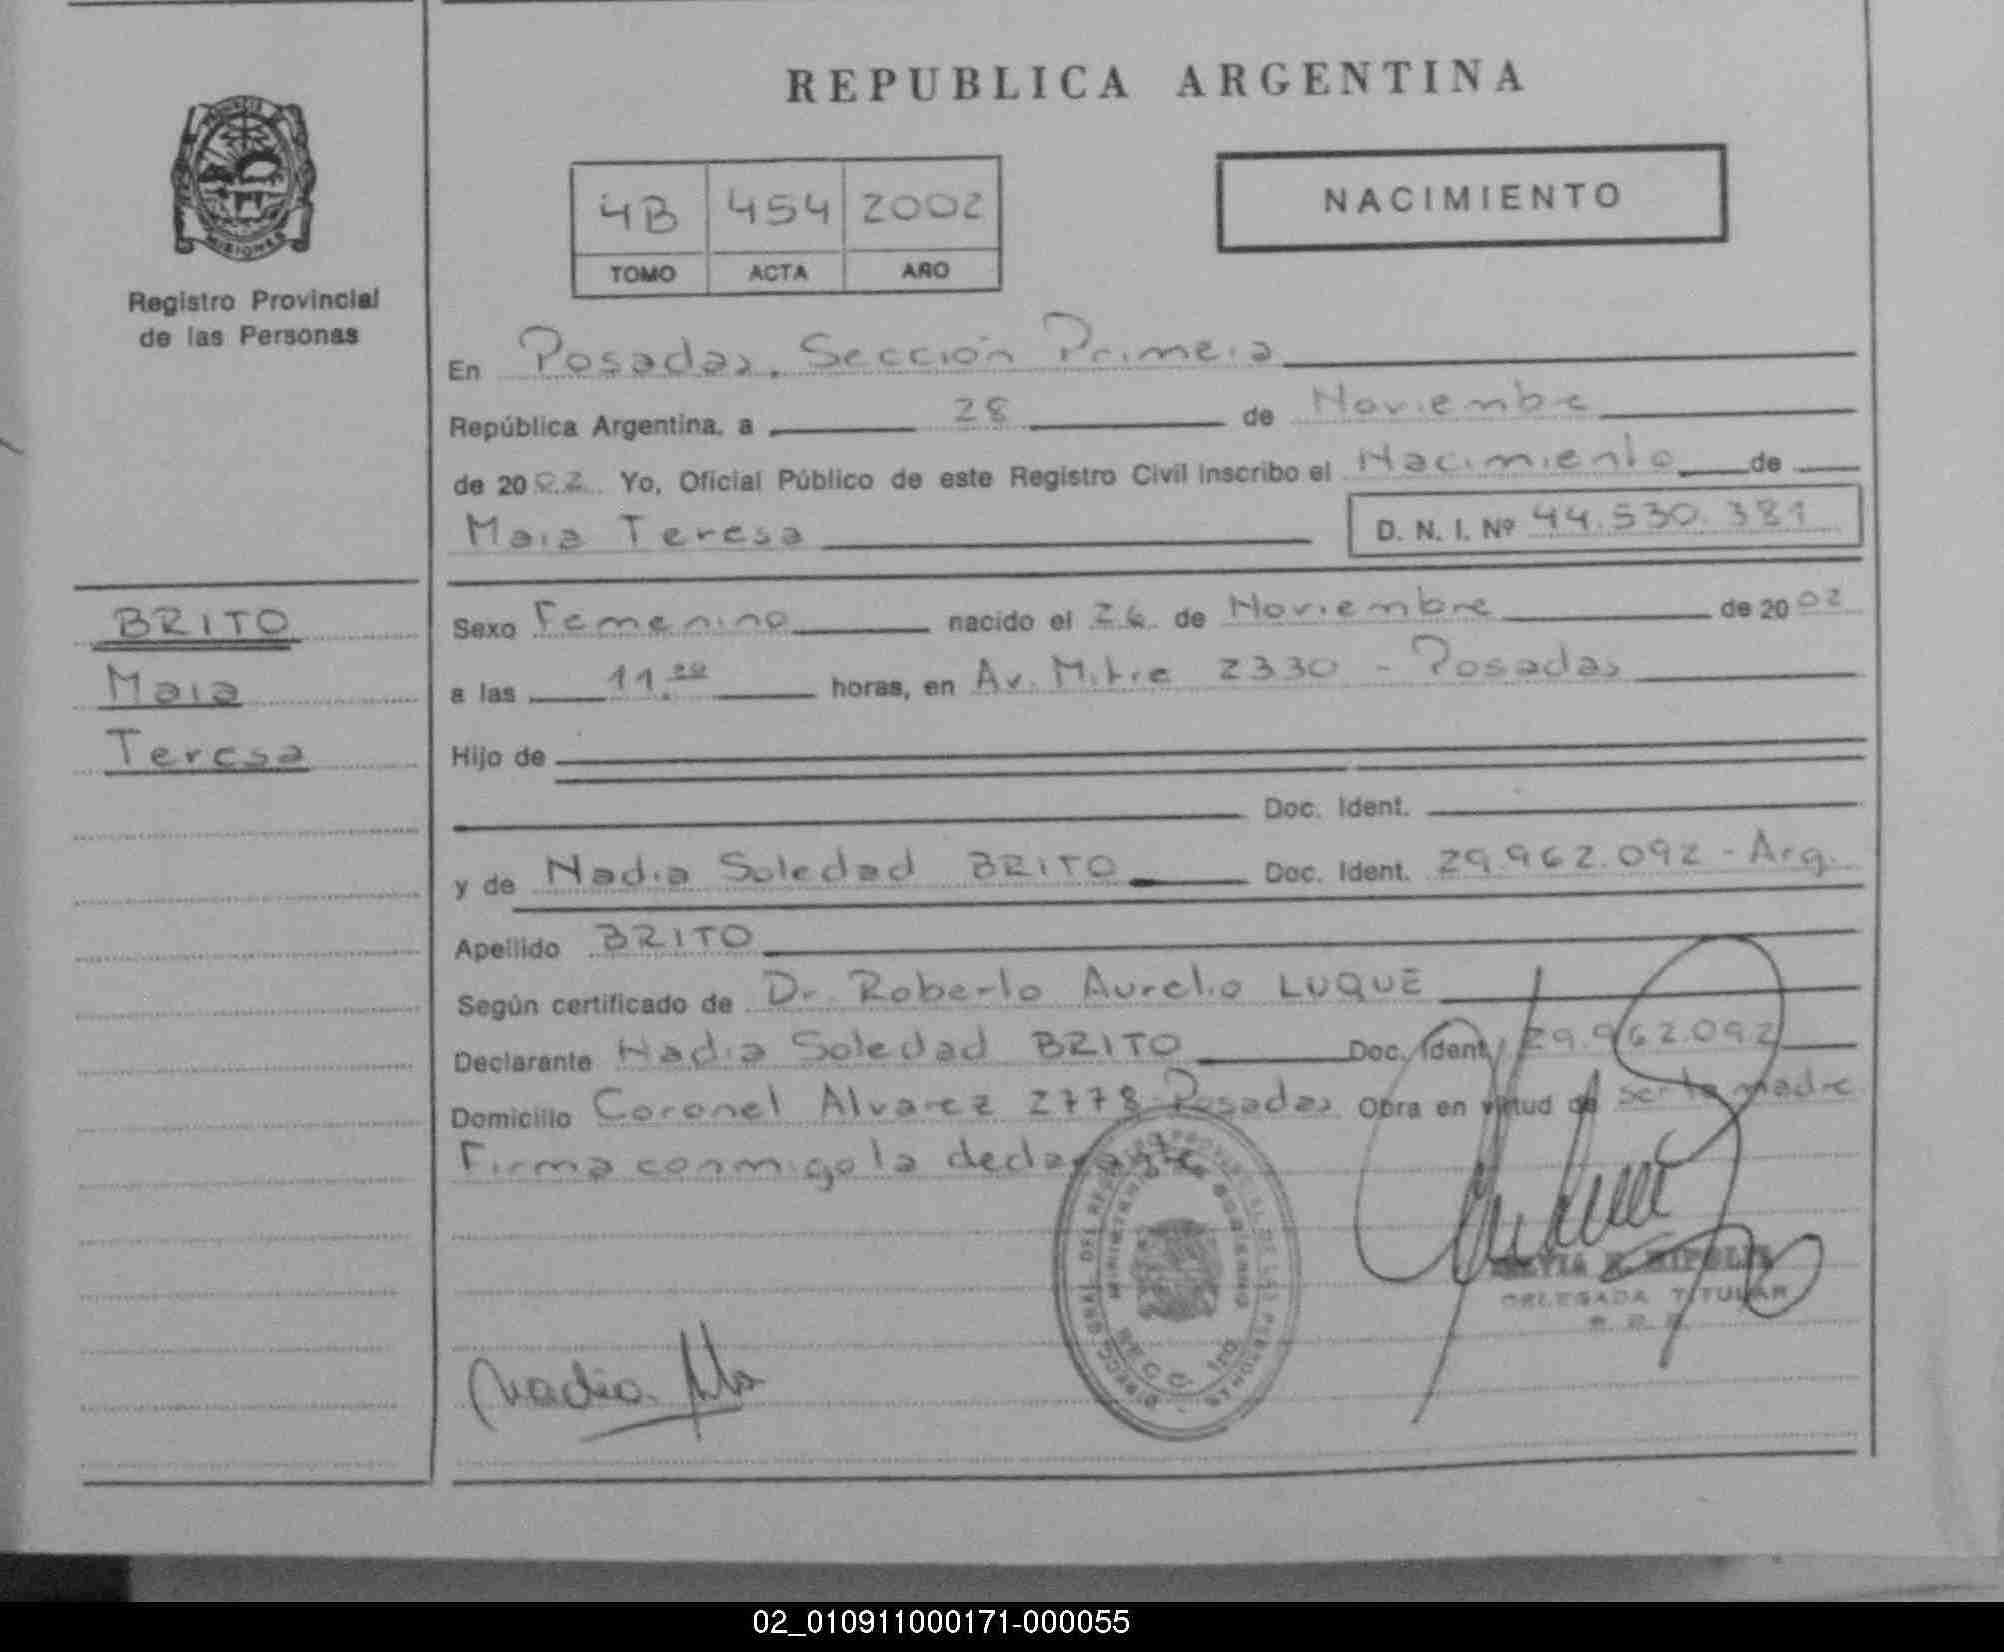 REPUBLICA ARGENTINA
NACIMIENTO
4B 454 2002
TOMO ACTA AÑO
MISIONES
Registro Provincial
de las Personas
En Posadas, Sección Primera
República Argentina, a 28 de Noviembre
de 2002 Yo, Oficial Público de este Registro Civil inscribo el Nacimiento de
Maia Teresa D. N. I. Nº 44.530.381
BRITO
Maia
Teresa
Sexo Femenino nacido el 26 de Noviembre de 2002
a las 11.00 horas, en Av. Mitre 2330 - Posadas
Hijo de
Doc. Ident.
y de Nadia Soledad BRITO Doc. Ident. 29.962.092 - Arg.
Apellido BRITO
Según certificado de Dr. Roberto Aurelio LUQUE
Declarante Nadia Soledad BRITO Doc. Ident. 29.962.092
Domicilio Coronel Alvarez 2778 Posadas Obra en virtud de ser la madre
Firma conmigo la declarante
DELEGADA TITULAR
Nadia
02_010911000171-000055